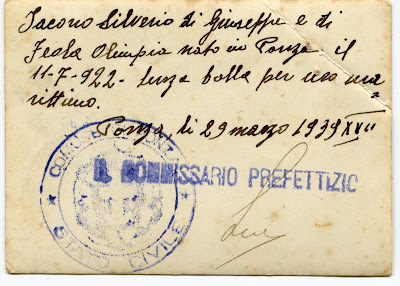 Iacono Silverio di Giuseppe e di
Feola Olimpia nato in Ponza il
11-7-922- senza bolla per uso ma
rittimo.
Ponza, li 29 marzo 1939 XVII
IL COMMISSARIO PREFETTIZIO
COMUNE DI PONZA
STATO CIVILE